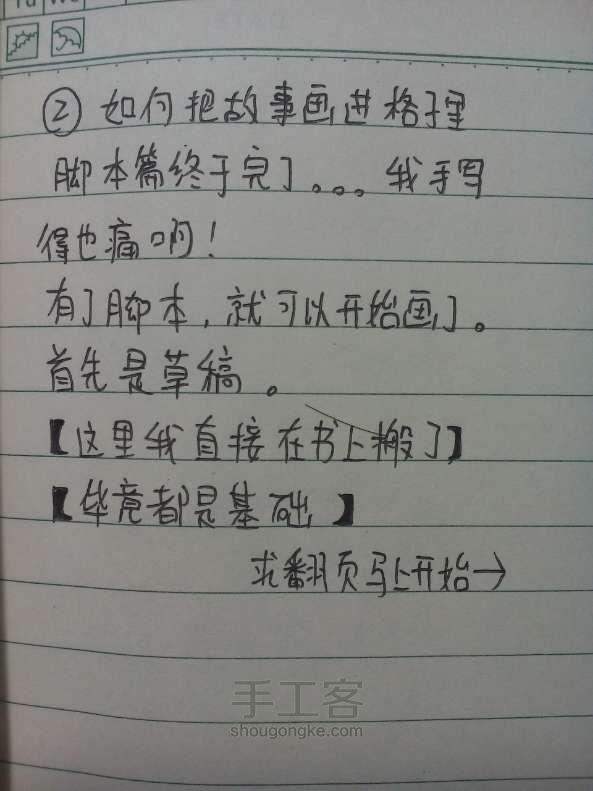 Tu We
② 如何把故事画进格子里
脚本篇终于完了。。。我手写
得也痛啊！
有了脚本，就可以开始画了。
首先是草稿。
【这里我直接在书上搬了】
【毕竟都是基础】
求翻页马上开始→
手工客
shougongke.com